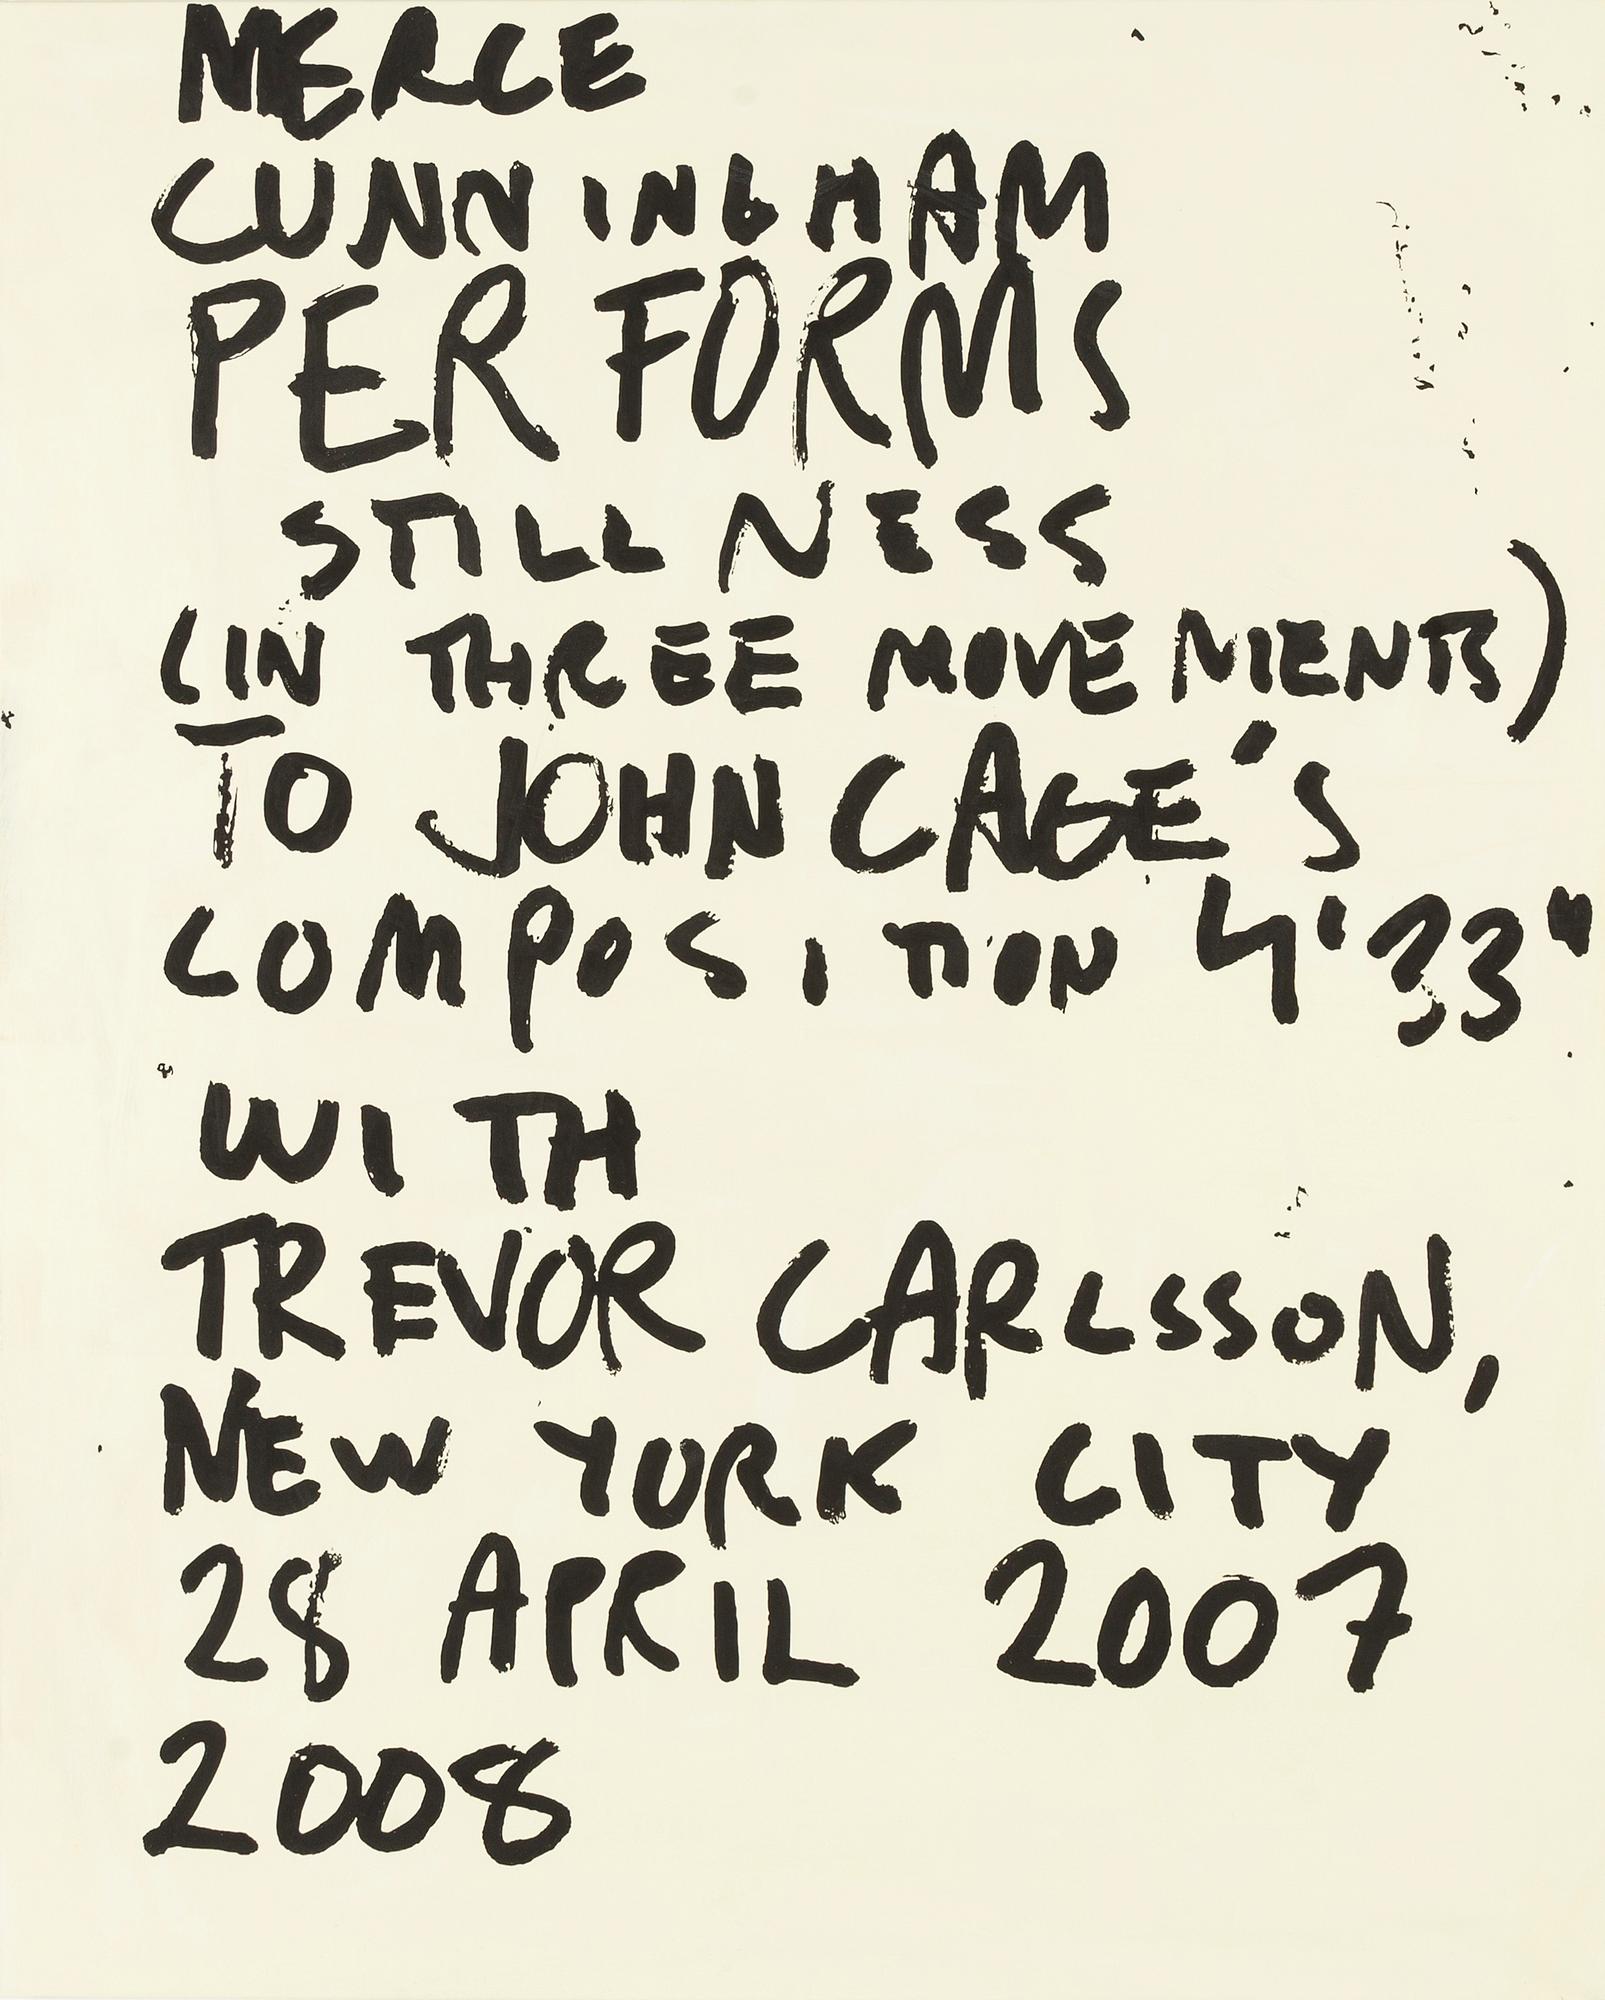 MERCE
CUNNINGHAM
PERFORMS
STILLNESS
(IN THREE MOVEMENTS)
TO JOHN CAGE'S
COMPOSITION 4'33"
WITH
TREVOR CARLSSON,
NEW YORK CITY
28 APRIL 2007
2008